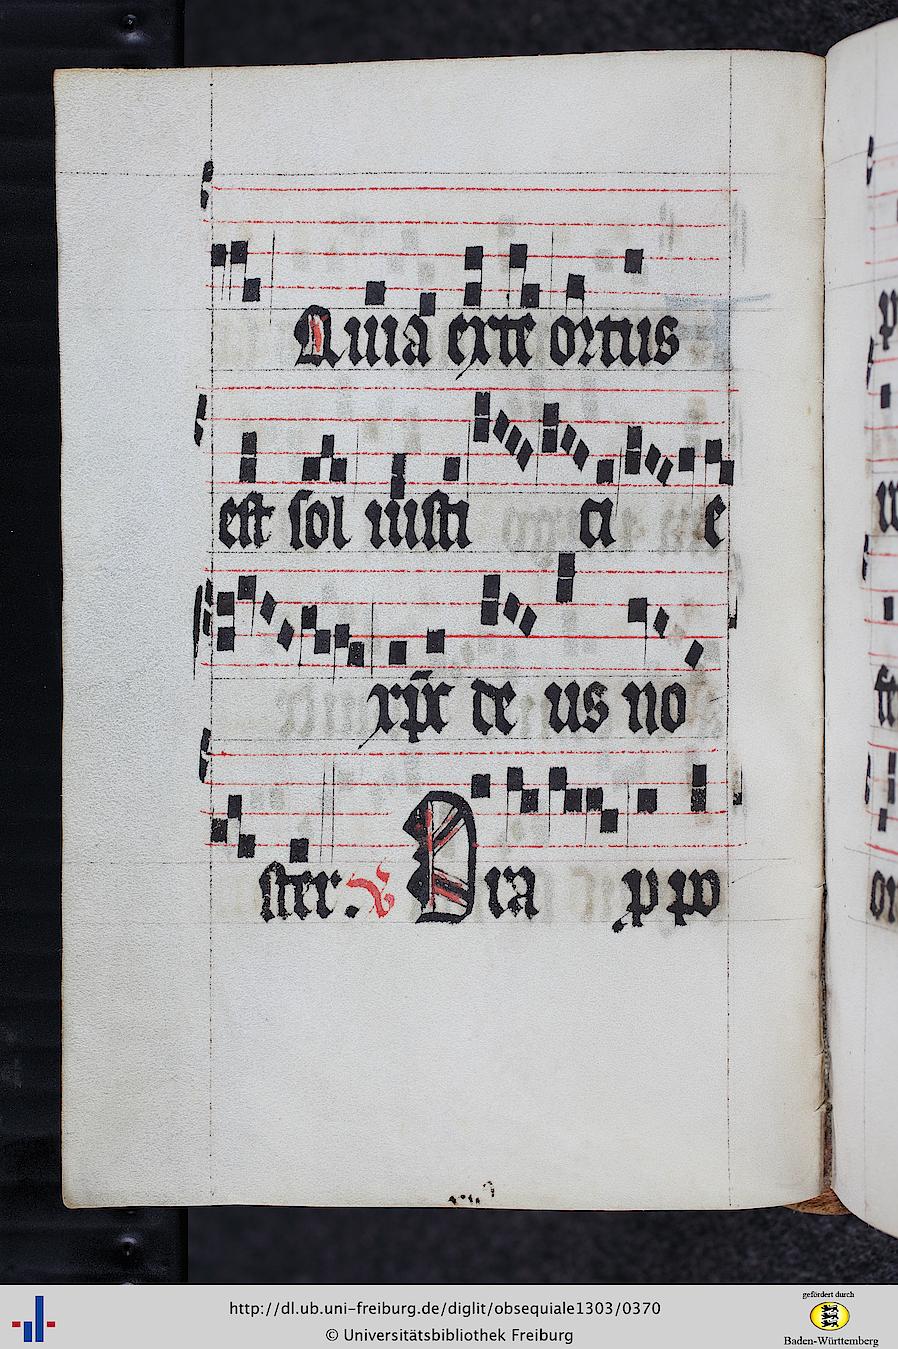 Quia exte ortus
est sol iusti ci e
xp̄s de us no
ster. V Ora p po
http://dl.ub.uni-freiburg.de/diglit/obsequiale1303/0370
© Universitätsbibliothek Freiburg
gefördert durch
Baden-Württemberg